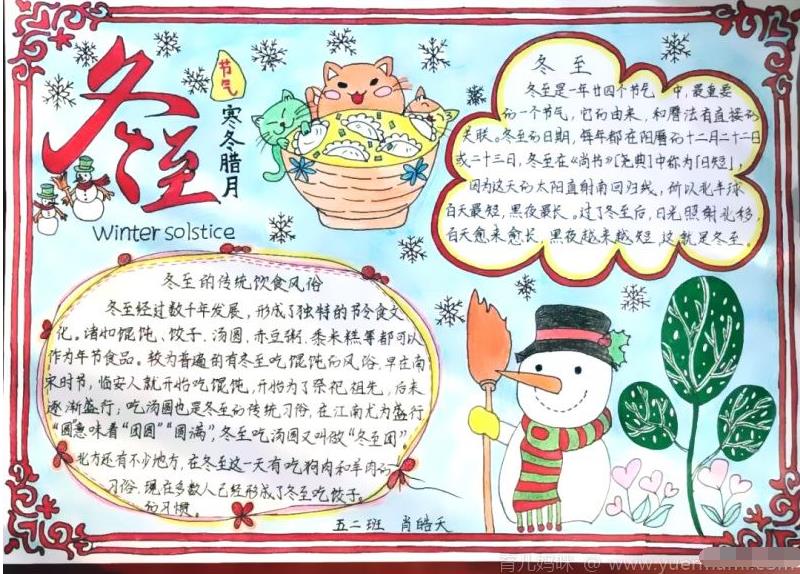 冬至
节气
寒冬腊月
Winter solstice
冬 至
冬至是一年廿四个节气 中,最重要
的一个节气,它的由来,和曆法有直接的
关联。冬至的日期,每年都在阳曆的十二月二十二日
或二十三日,冬至在《尚书》[尧典]中称为「日短」,
因为这天的太阳直射南回归线,所以北半球
白天最短,黑夜最长。过了冬至后,日光照射北移,
白天愈来愈长 黑夜越来越短,这就是冬至。
冬至的传统饮食风俗
冬至经过数千年发展,形成了独特的节令食文
化。诸如馄饨、饺子、汤圆、赤豆粥、黍米糕等都可以
作为年节食品。较为普遍的有冬至吃馄饨的风俗,早在南
宋时节,临安人就开始吃馄饨,开始为了祭祀祖先,后来
逐渐盛行;吃汤圆也是冬至的传统习俗,在江南尤为盛行
“圆意味着“团圆”“圆满”,冬至吃汤圆又叫做“冬至团”,
北方还有不少地方,在冬至这一天有吃狗肉和羊肉的
习俗,现在多数人已经形成了冬至吃饺子
的习惯。
五二班 肖皓天
育儿妈咪 @ www.yuermami.com